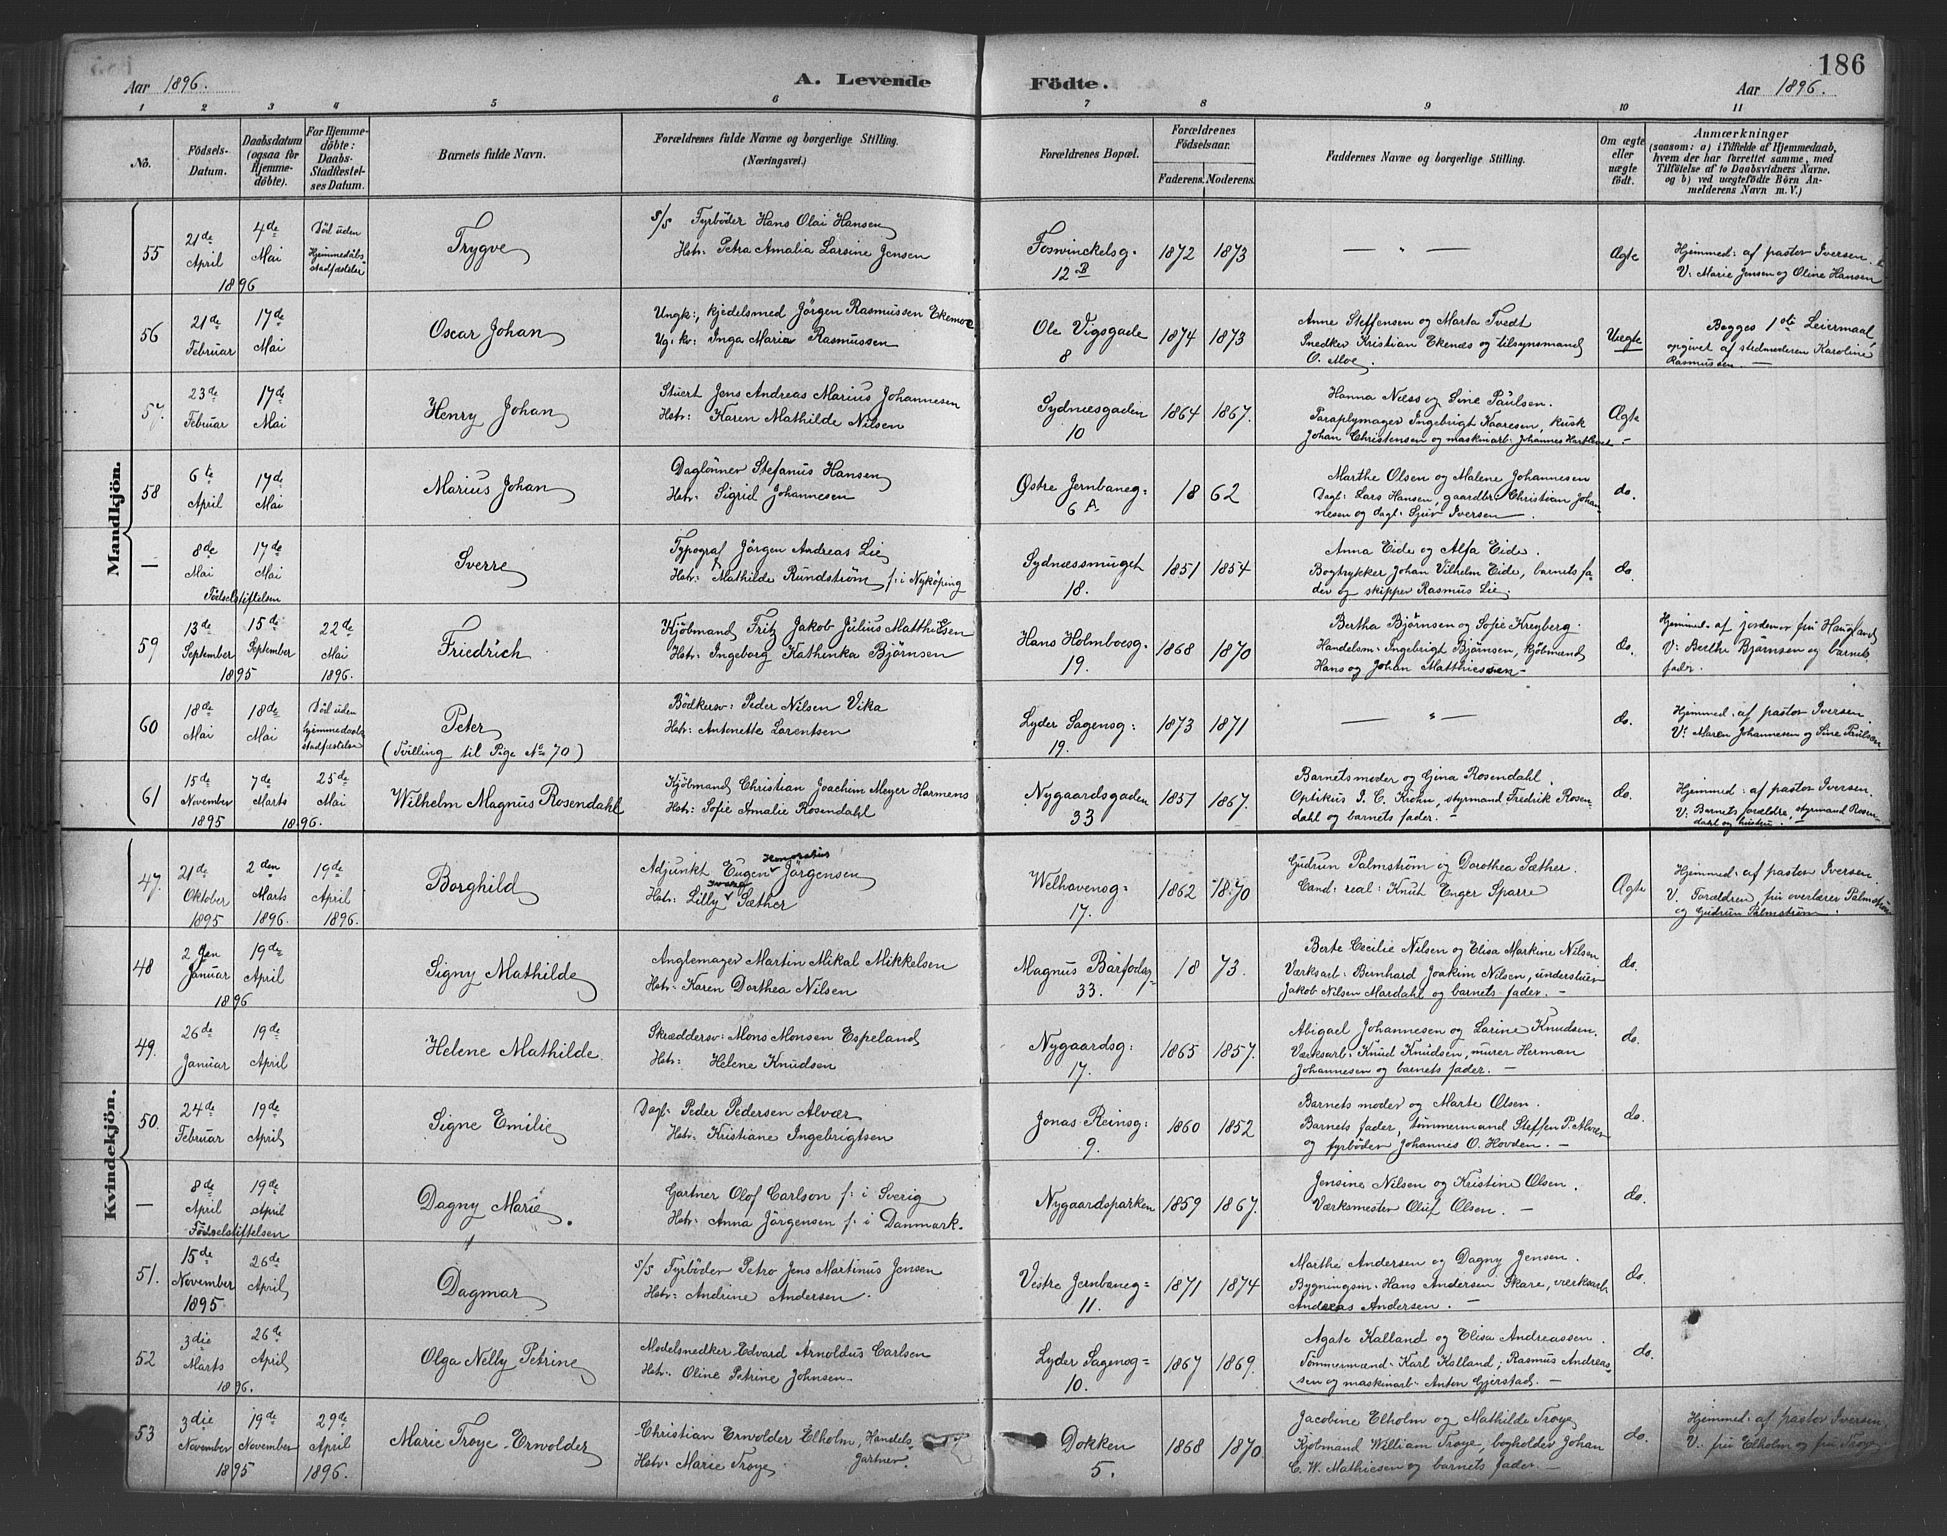 186
Aar 1896.
A. Levende Födte.
Aar 1896.
1 2 3 4 5 6 7 8 9 10 11
No.
Födsels-Datum.
Daabsdatum (ogsaa for Hjemmedöbte).
For Hjemmedöbte: Daabs-Stadfæstelses Datum.
Barnets fulde Navn.
Forældrenes fulde Navne og borgerlige Stilling. (Næringsvei.)
Forældrenes Bopæl.
Forældrenes Födselsaar.
Faderens. Moderens.
Faddernes Navne og borgerlige Stilling.
Om ægte eller uægte födt.
Anmærkninger
(saasom: a) i Tilfælde af Hjemmedaab, hvem der har forrettet samme, med Tilföielse af to Daabsvidners Navne. og b) ved uægtefödte Börn Anmelderens Navn m. V.)
Mandkjön.
55
21de April 1896
4de Mai
Död uden Hjemmedaabs stadfæstelse
Trygve
S/S Fyrböder Hans Olai Hansen
Hstr: Petra Amalia Larsine Jensen
Foswinckelsg. 12 B
1872 1873
— " —
Ægte
Hjemmed: af pastor Iversen.
V: Marie Jensen og Oline Hansen
56
21de Februar
17de Mai
Oscar Johan
Ungk:, kjedelsmed Jörgen Rasmussen Ekemoe
Ug: kv: Inga Maria Rasmussen
Ole Vigsgade 8
1874 1873
Anne Steffensen og Marta Tvedt
Snedker Kristian Ekenæs og tilsynsmand
O. Moe.
Uægte
Begges 1ste Leiermaal
opgivet af stedmoderen Karoline
Rasmussen. —
57.
23de Februar
17de Mai
Henry Johan
Stuert Jens Andreas Marius Johannesen
Hstr: Karen Mathilde Nilsen
Sydnæsgaden 10
1864 1867.
Hanna Næss og Sine Paulsen.
Paraplymager Ingebrigt Kaaresen, kusk
Johan Christensen og maskinarb: Johannes Hartlevet
Ægte —
58
6te April
17de Mai
Marius Johan
Daglönner Stefanus Hansen
Hstr: Sigrid Johannesen
Østre Jernbaneg: 6 A.
18 62
Marthe Olsen og Malene Johannesen
Dagl: Lars Hansen, gaardbr: Christian Johan-
nesen og dagl: Sjur Iversen —
do.
—
8de Mai
Födselstiftelsen
17de Mai
Sverre
Typograf Jörgen Andreas Lie
Hstr: Mathilde Rundström f: i Nyköping
Sydnæssmuget 18.
1851 1854
Anna Eide og Alfa Eide.
Bogtrykker Johan Vilhelm Eide, barnets fa-
der og skipper Rasmus Lie.
do.
59
13de September 1895
15de September
22de Mai 1896.
Friedrich
Kjöbmand Fritz Jakob Julius Matthiesen
Hstr: Ingeborg Kathinka Björnsen
Hans Holmboesg. 19.
1868 1870
Bertha Björnsen og Sofie Kreyberg.
Handelsm: Ingebrigt Björnsen, kjöbmænd
Hans og Johan Matthiessen —
do.
Hjemmed: af jordemor fru Haugland
V: Berthe Björnsen og barnets
fader.
60
18de Mai
18de Mai
Död uden hjemmedaabs stadfæstelse
Peter
(Tvilling til Pige No 70)
Bödkersv: Peder Nilsen Vika
Hstr: Antonette Larentsen
Lyder Sagensg: 19.
1873 1871
— " —
do.
Hjemmed: af pastor Iversen.
V: Maren Johannesen og Sine Paulsen
61
15de November 1895
7de Marts 1896.
25de Mai
Wilhelm Magnus Rosendahl
Kjöbmand Christian Joachim Meyer Harmens
Hstr: Sofie Amalie Rosendahl
Nygaardsgaden 33
1857 1867.
Barnets moder og Gina Rosendahl.
Optikus I. C. Krohn, styrmand Fredrik Rosen-
dahl og barnets fader. —
do.
Hjemmed: af pastor Iversen.
V: Barnets forældre, styrmand Rosen-
dahl og hustru. —
Kvindekjön.
47.
21de Oktober 1895
2den Marts 1896.
19de April 1896.
Borghild
Adjunkt Eugen Honoratius Jörgensen
Hstr: Lilly Sæther
Welhavensg: 17.
1862 1870
Gudrun Palmström og Dorothea Sæther.
Cand: real: Knut Enger Sparre
Ægte
Hjemmed: af pastor Iversen.
V. Forældren, fru overlærer Palmström
og Gudrun Palmström.
48
2den Januar 1896
19de April
Signy Mathilde
Anglemager Martin Mikal Mikkelsen
Hstr: Karen Dorthea Nilsen
Magnus Barfodsg= 33.
18 73.
Berte Cecilie Nilsen og Elisa Markine Nilsen
Værksarb: Bernhard Joakim Nilsen, understuer
Jakob Nilsen Mardahl og barnets fader. —
do.
49.
26de Januar
19de April
Helene Mathilde.
Skræddersv: Mons Monsen Espeland
Hstr: Helene Knudsen
Nygaardsg: 17.
1865 1857.
Abigael Johannesen og Larine Knudsen.
Værksarb: Knud Knudsen, murer Herman
Johannesen og barnets fader. —
do.
50.
24de Februar
19de April
Signe Emilie
Dagl: Peder Pedersen Alvær
Hstr: Kristiane Ingebrigtsen
Jonas Reinsg: 9.
1860 1852
Barnets moder og Marte Olsen.
Barnets fader, tömmermand Steffen P. Alvær
og fyrböder Johannes O. Hovden. —
do.
—
8de April
Födselstiftelsen
19de April
Dagny Marie.
Gartner Olof Carlson f: i Sverig
Hstr: Anna Jörgensen f: i Danmark.
Nygaardsparken
1859 1867.
Jensine Nilsen og Kristine Olsen.
Værksmester Oluf Olsen. —
do.
51.
15de November 1895.
26de April
Dagmar
S/S Fyrböder Petro Jens Martinus Jensen
Hstr: Andrine Andersen.
Vestre Jernbaneg= 11.
1871 1874
Marthe Andersen og Dagny Jensen.
Bygningsm: Hans Andersen Skare, værksarb.
Andreas Andersen. —
do.
52
3die Marts 1896.
26de April
Olga Nelly Petrine
Modelsnedker Edvard Arnoldus Carlsen
Hstr: Oline Petrine Johnsen.
Lyder Sagensg= 10.
1867 1869.
Agate Kalland og Elisa Andreassen.
Tömmermænd: Karl Kalland, Rasmus Andreas-
sen og maskinarb: Anton Gjerstad. —
do.
53
3die November 1895
19de November
29de April 1896.
Marie Troye Erwolder
Christian Erwolder Elholm, Handelsgartner.
Hstr: Marie Troye
Dokken 5.
1868 1870.
Jacobine Elholm og Mathilde Troye
Kjöbmand William Troye, bogholder Johan
C. W. Mathiesen og barnets fader. —
do.
Hjemmed: af pastor Iversen
V. fru Elholm og fru Troye